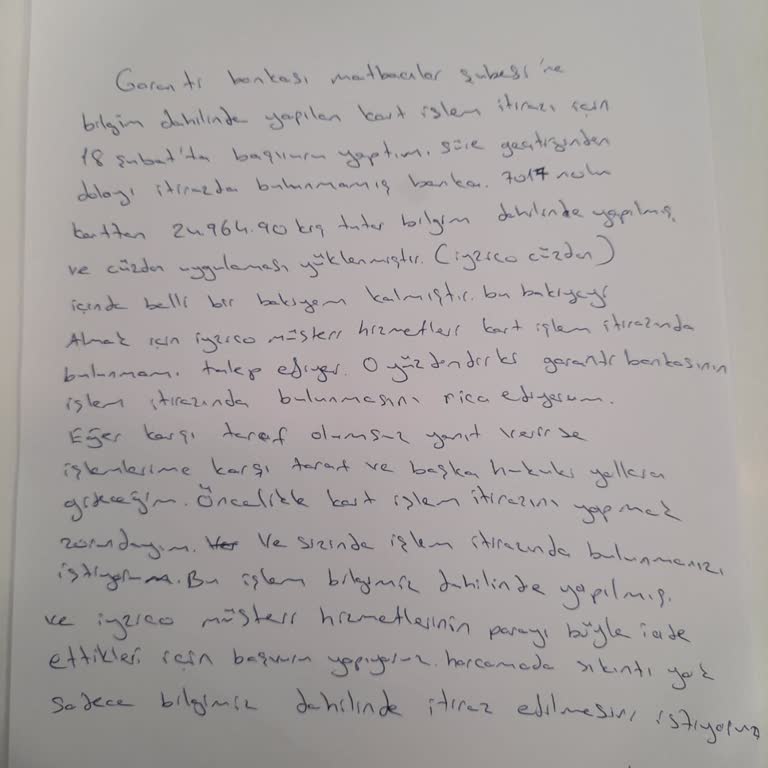 Garanti bankası matbacılar şubesi'ne
bilgim dahilinde yapılan kart işlem itirazı için
18 şubat'ta başvuru yaptım. süre geçtiğinden
dolayı itirazda bulunmamış banka. 7017 nolu
karttan 24.964.90 krş tutar bilgim dahilinde yapılmış,
ve cüzdan uygulaması yüklenmiştir. (iyzico cüzdan)
içinde belli bir bakiyem kalmıştır. bu bakiyeyi
Almak için iyzico müşteri hizmetleri kart işlem itirazında
bulunmamı talep ediyor. O yüzdendirki garanti bankasının
işlem itirazında bulunmasını rica ediyorum.
Eğer karşı taraf olumsuz yanıt verirse
işlemlerime karşı taraf ve başka hukuki yollara
gideceğim. Öncelikle kart işlem itirazını yapmak
zorundayım. Ve sizinde işlem itirazında bulunmanızı
istiyorum. Bu işlem bilgimiz dahilinde yapılmış,
ve iyzico müşteri hizmetlerinin parayı böyle iade
ettikleri için başvuru yapıyoruz. harcamada sıkıntı yok
sadece bilgimiz dahilinde itiraz edilmesini istiyoruz